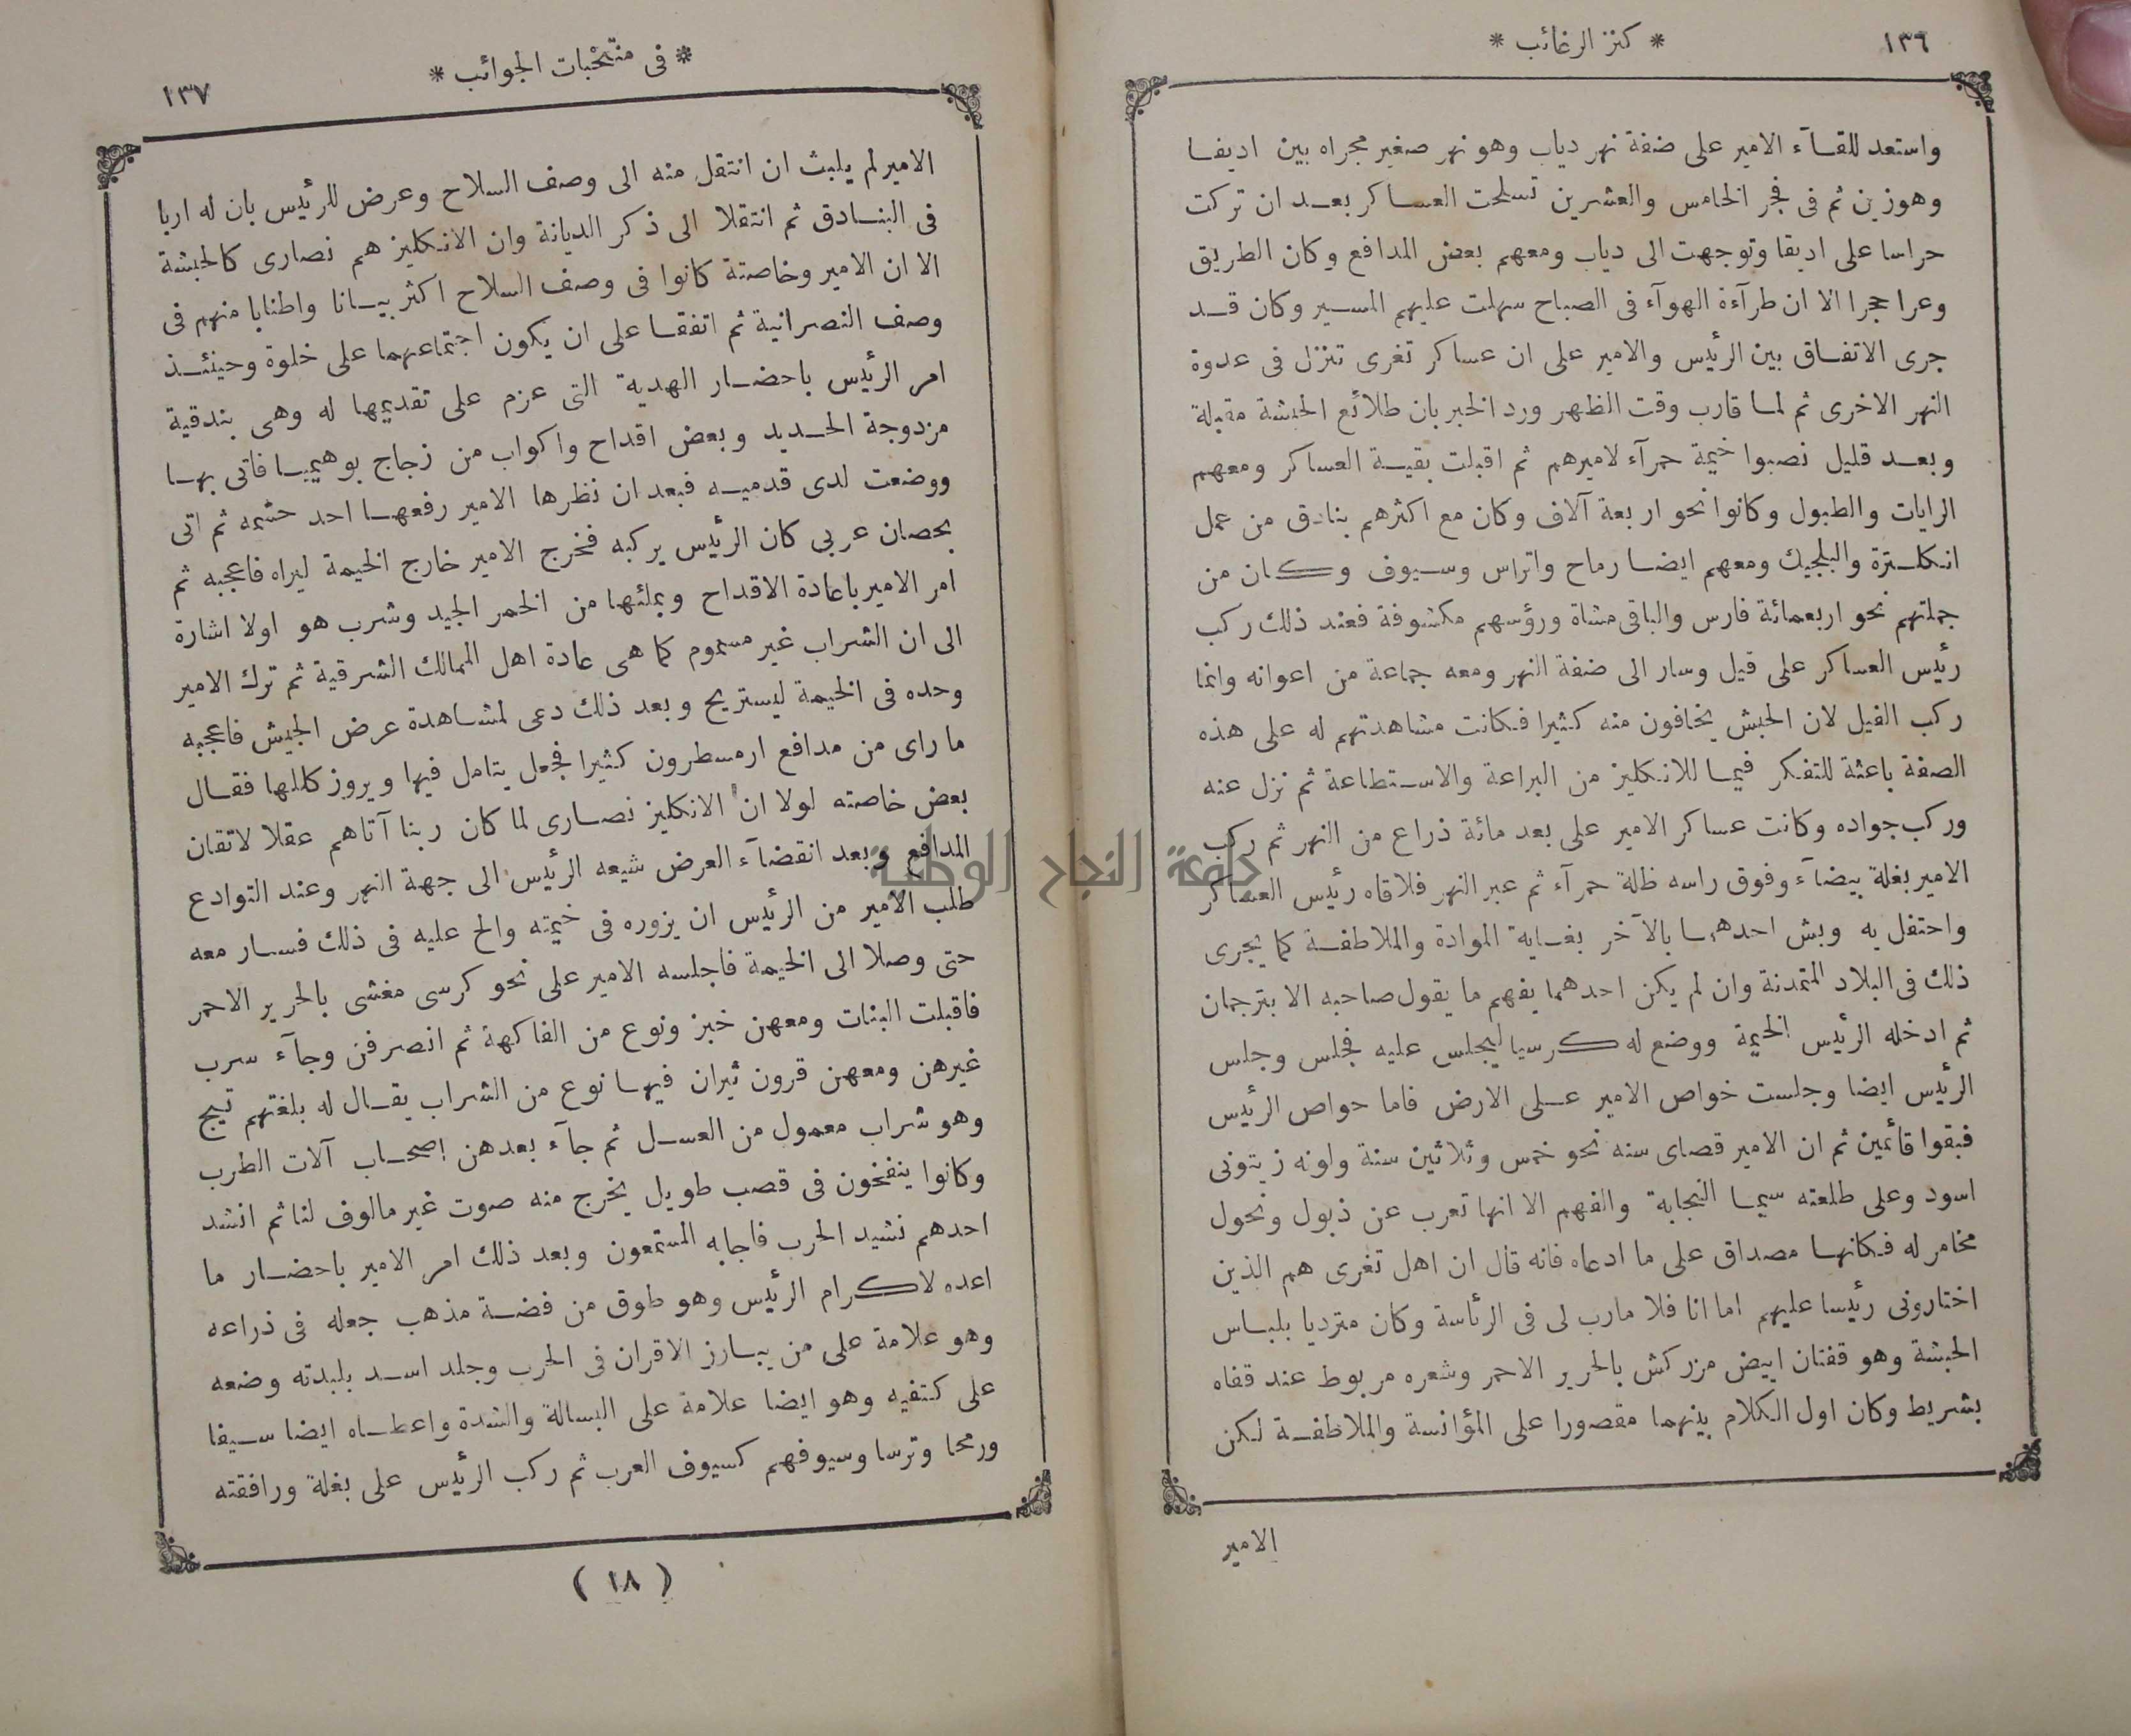 ١٣٦
* كنز الرغائب *
واستعد للقآء الامير على ضفة نهر دياب وهو نهر صغير مجراه بين اديفا
وهوزين ثم فى فجر الخامس والعشرين تسلحت العساكر بعد ان تركت
حراسا على اديقا وتوجهت الى دياب ومعهم بعض المدافع وكان الطريق
وعرا حجرا الا ان طرآءة الهوآء فى الصباح سهلت عليهم المسير وكان قد
جرى الاتفاق بين الرئيس والامير على ان عساكر تغرى تنزل فى عدوة
النهر الاخرى ثم لما قارب وقت الظهر ورد الخبر بان طلائع الحبشة مقبلة
وبعد قليل نصبوا خيمة حمرآء لاميرهم ثم اقبلت بقية العساكر ومعهم
الرايات والطبول وكانوا نحو اربعة آلاف وكان مع اكثرهم بنادق من عمل
انكلترة والبلجيك ومعهم ايضا رماح واتراس وسيوف وكان من
جملتهم نحو اربعمائة فارس والباقى مشاة ورؤسهم مكشوفة فعند ذلك ركب
رئيس العساكر على فيل وسار الى ضفة النهر ومعه جماعة من اعوانه وانما
ركب الفيل لان الحبش يخافون منه كثيرا فكانت مشاهدتهم له على هذه
الصفة باعثة للتفكر فيما للانكليز من البراعة والاستطاعة ثم نزل عنه
وركب جواده وكانت عساكر الامير على بعد مائة ذراع من النهر ثم ركب
الامير بغلة بيضآء وفوق راسه ظلة حمرآء ثم عبر النهر فلاقاه رئيس العساكر
واحتفل به وبش احدهما بالآخر بغاية الموادة والملاطفة كما يجرى
ذلك فى البلاد المتمدنة وان لم يكن احدهما يفهم ما يقول صاحبه الا بترجمان
ثم ادخله الرئيس الخيمة ووضع له كرسيا ليجلس عليه فجلس وجلس
الرئيس ايضا وجلست خواص الامير على الارض فاما حواص الرئيس
فبقوا قائمين ثم ان الامير قصاى سنه نحو خمس وثلاثين سنة ولونه زيتونى
اسود وعلى طلعته سيما النجابة والفهم الا انها تعرب عن ذبول ونحول
مخامر له فكانها مصداق على ما ادعاه فانه قال ان اهل تغرى هم الذين
اختارونى رئيسا عليهم اما انا فلا مارب لى فى الرئاسة وكان مترديا بلباس
الحبشة وهو قفتان ابيض مزركش بالحرير الاحمر وشعره مربوط عند قفاه
بشريط وكان اول الكلام بينهما مقصورا على المؤانسة والملاطفة لكن
الامير
* فى منتخبات الجوائب *
١٣٧
الامير لم يلبث ان انتقل منه الى وصف السلاح وعرض للرئيس بان له اربا
فى البنادق ثم انتقلا الى ذكر الديانة وان الانكليز هم نصارى كالحبشة
الا ان الامير وخاصتة كانوا فى وصف السلاح اكثر بيانا واطنابا منهم فى
وصف النصرانية ثم اتفقا على ان يكون اجتماعهما على خلوة وحينئذ
امر الرئيس باحضار الهدية التى عزم على تقديمها له وهى بندقية
مزدوجة الحديد وبعض اقداح واكواب من زجاج بوهيميا فاتى بها
ووضعت لدى قدميه فبعد ان نظرها الامير رفعها احد حشمه ثم اتى
بحصان عربى كان الرئيس يركبه فخرج الامير خارج الخيمة ليراه فاعجبه ثم
امر الامير باعادة الاقداح وبملئها من الخمر الجيد وشرب هو اولا اشارة
الى ان الشراب غير مسموم كما هى عادة اهل الممالك الشرقية ثم ترك الامير
وحده فى الخيمة ليستريح وبعد ذلك دعى لمشاهدة عرض الجيش فاعجبه
ما راى من مدافع ارمسطرون كثيرا فجعل يتامل فيها ويروز كللها فقال
بعض خاصته لولا ان الانكليز نصارى لما كان ربنا آتاهم عقلا لاتقان
المدافع وبعد انقضآء العرض شيعه الرئيس الى جهة النهر وعند التوادع
طلب الامير من الرئيس ان يزوره فى خيمته والح عليه فى ذلك فسار معه
حتى وصلا الى الخيمة فاجلسه الامير على نحو كرسى مغشى بالحرير الاحمر
فاقبلت البنات ومعهن خبز ونوع من الفاكهة ثم انصرفن وجآء سرب
غيرهن ومعهن قرون ثيران فيها نوع من الشراب يقال له بلغتهم تيج
وهو شراب معمول من العسل ثم جآء بعدهن اصحاب آلات الطرب
وكانوا ينفخون فى قصب طويل يخرج منه صوت غير مالوف لنا ثم انشد
احدهم نشيد الحرب فاجابه المستمعون وبعد ذلك امر الامير باحضار ما
اعده لاكرام الرئيس وهو طوق من فضة مذهب جعله فى ذراعه
وهو علامة على من يبارز الاقران فى الحرب وجلد اسد بلبدته وضعه
على كتفيه وهو ايضا علامة على البسالة والشدة واعطاه ايضا سيفا
ورمحا وترسا وسيوفهم كسيوف العرب ثم ركب الرئيس على بغلة ورافقته
( ١٨ )
جامعة النجاح الوطنية